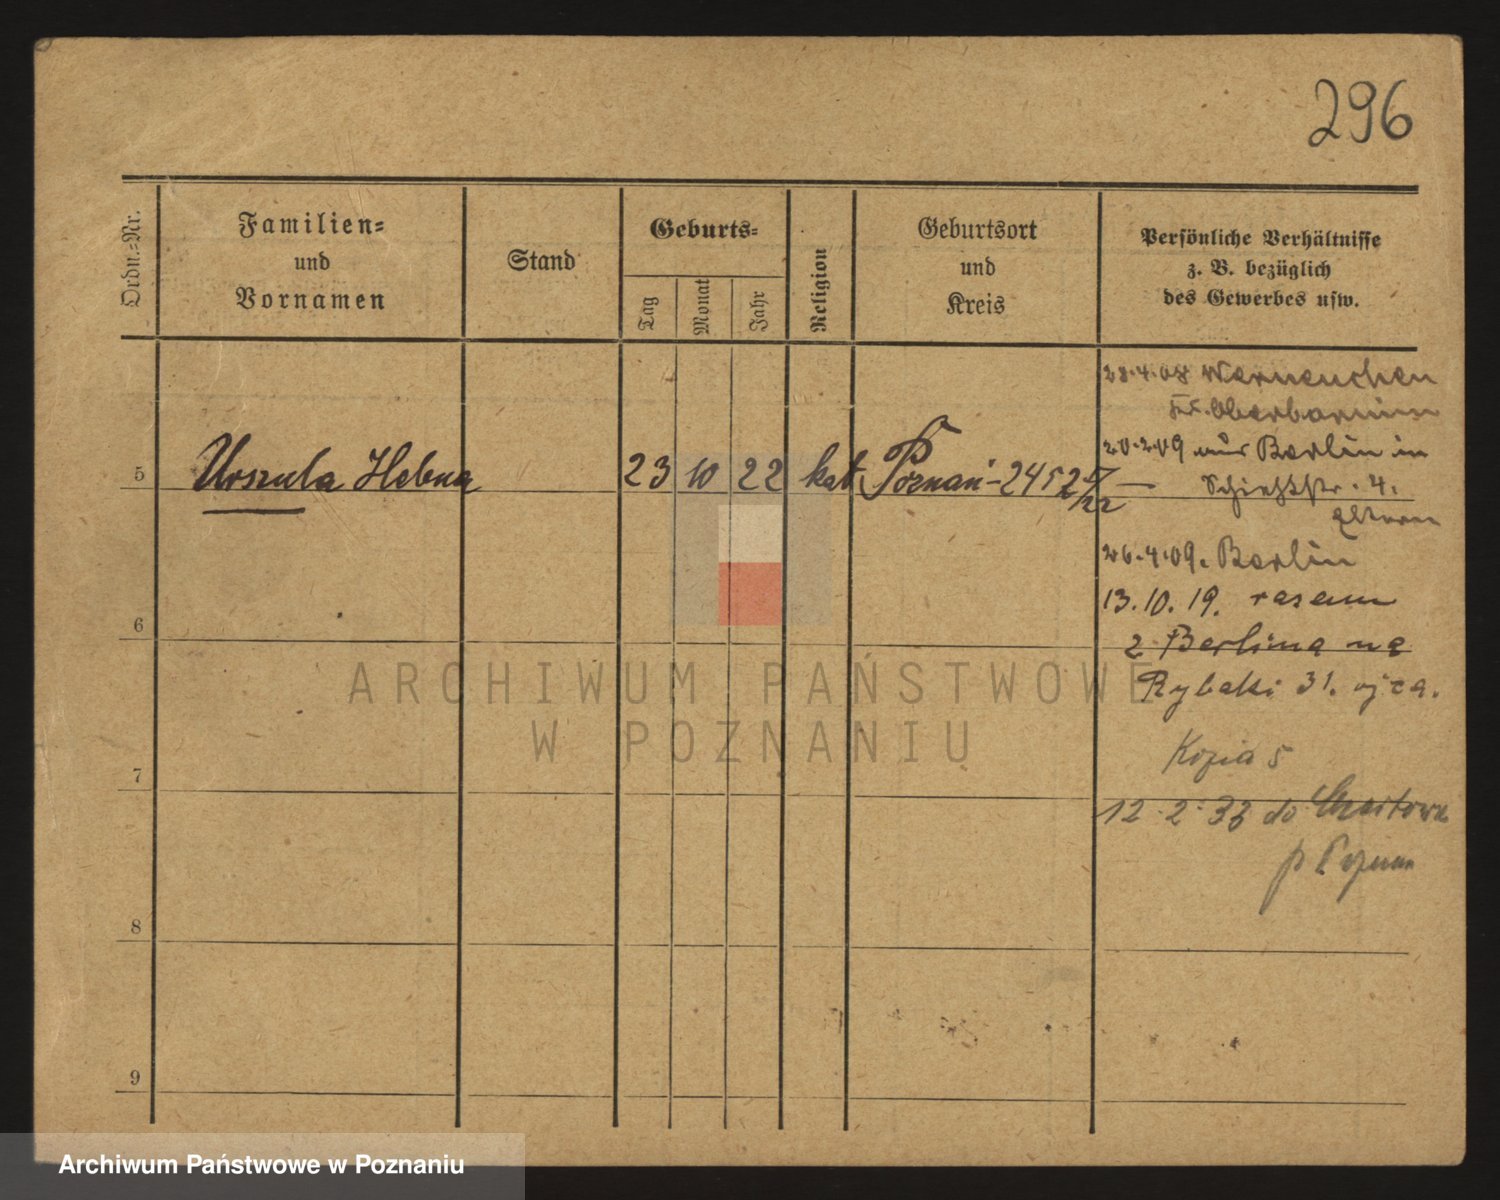 296
Ordn.=Nr.
Familien=
und
Vornamen
Stand
Geburts=
Tag
Monat
Jahr
Religion
Geburtsort
und
Kreis
Persönliche Verhältnisse
z. B. bezüglich
des Gewerbes usw.
28.4.08 Werneuchen
Kr. Oberbarnim
20.2.09 aus Berlin in
4.
Eltern
5 Urszula Helena 23 10 22 kat. Poznań - 2452/22 —
26.4.09. Berlin
13.10.19. razem
6
z Berlina na
Rybaki 31. ojca.
Kopia 5
7
12.2.33 do
p
8
9
ARCHIWUM PAŃSTWOWE
W POZNANIU
Archiwum Państwowe w Poznaniu